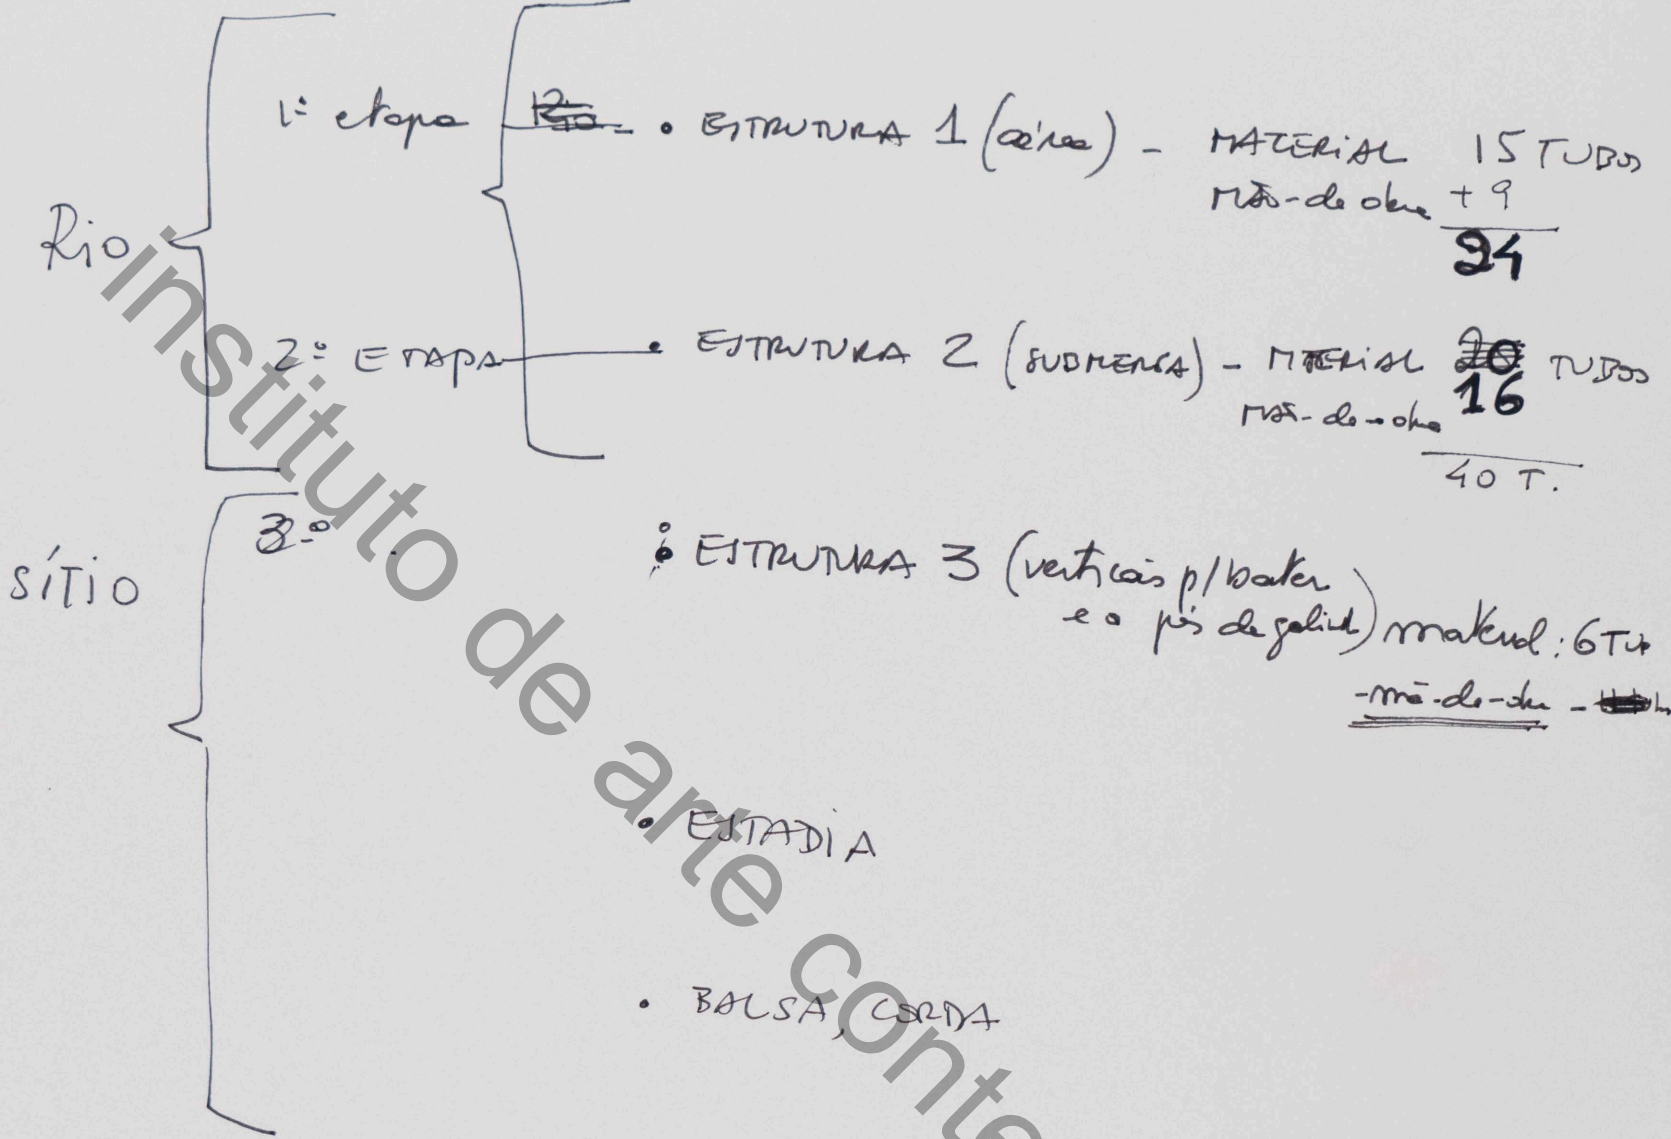 1ª etapa Rio - • ESTRUTURA 1 (aérea) - MATERIAL 15 TUBOS
mão-de obra + 9
24
Rio
2ª ETAPA • ESTRUTURA 2 (SUBMERSA) - MATERIAL 20 TUBOS
mão-de-obra 16
40 T.
3º
• ESTRUTURA 3 (verticais p/ bater
e o pés de galinha) material: 6 Tub
SÍTIO
-mão-de-obra -
• ESTADIA
• BALSA, CORDA
instituto de arte conte